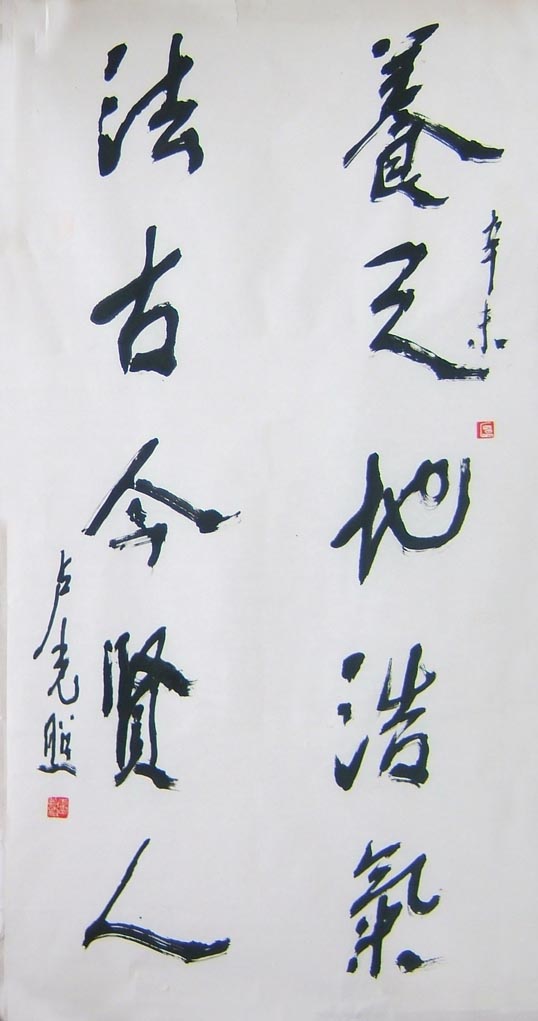 養天地浩氣
辛未
法古今賢人
卢光照